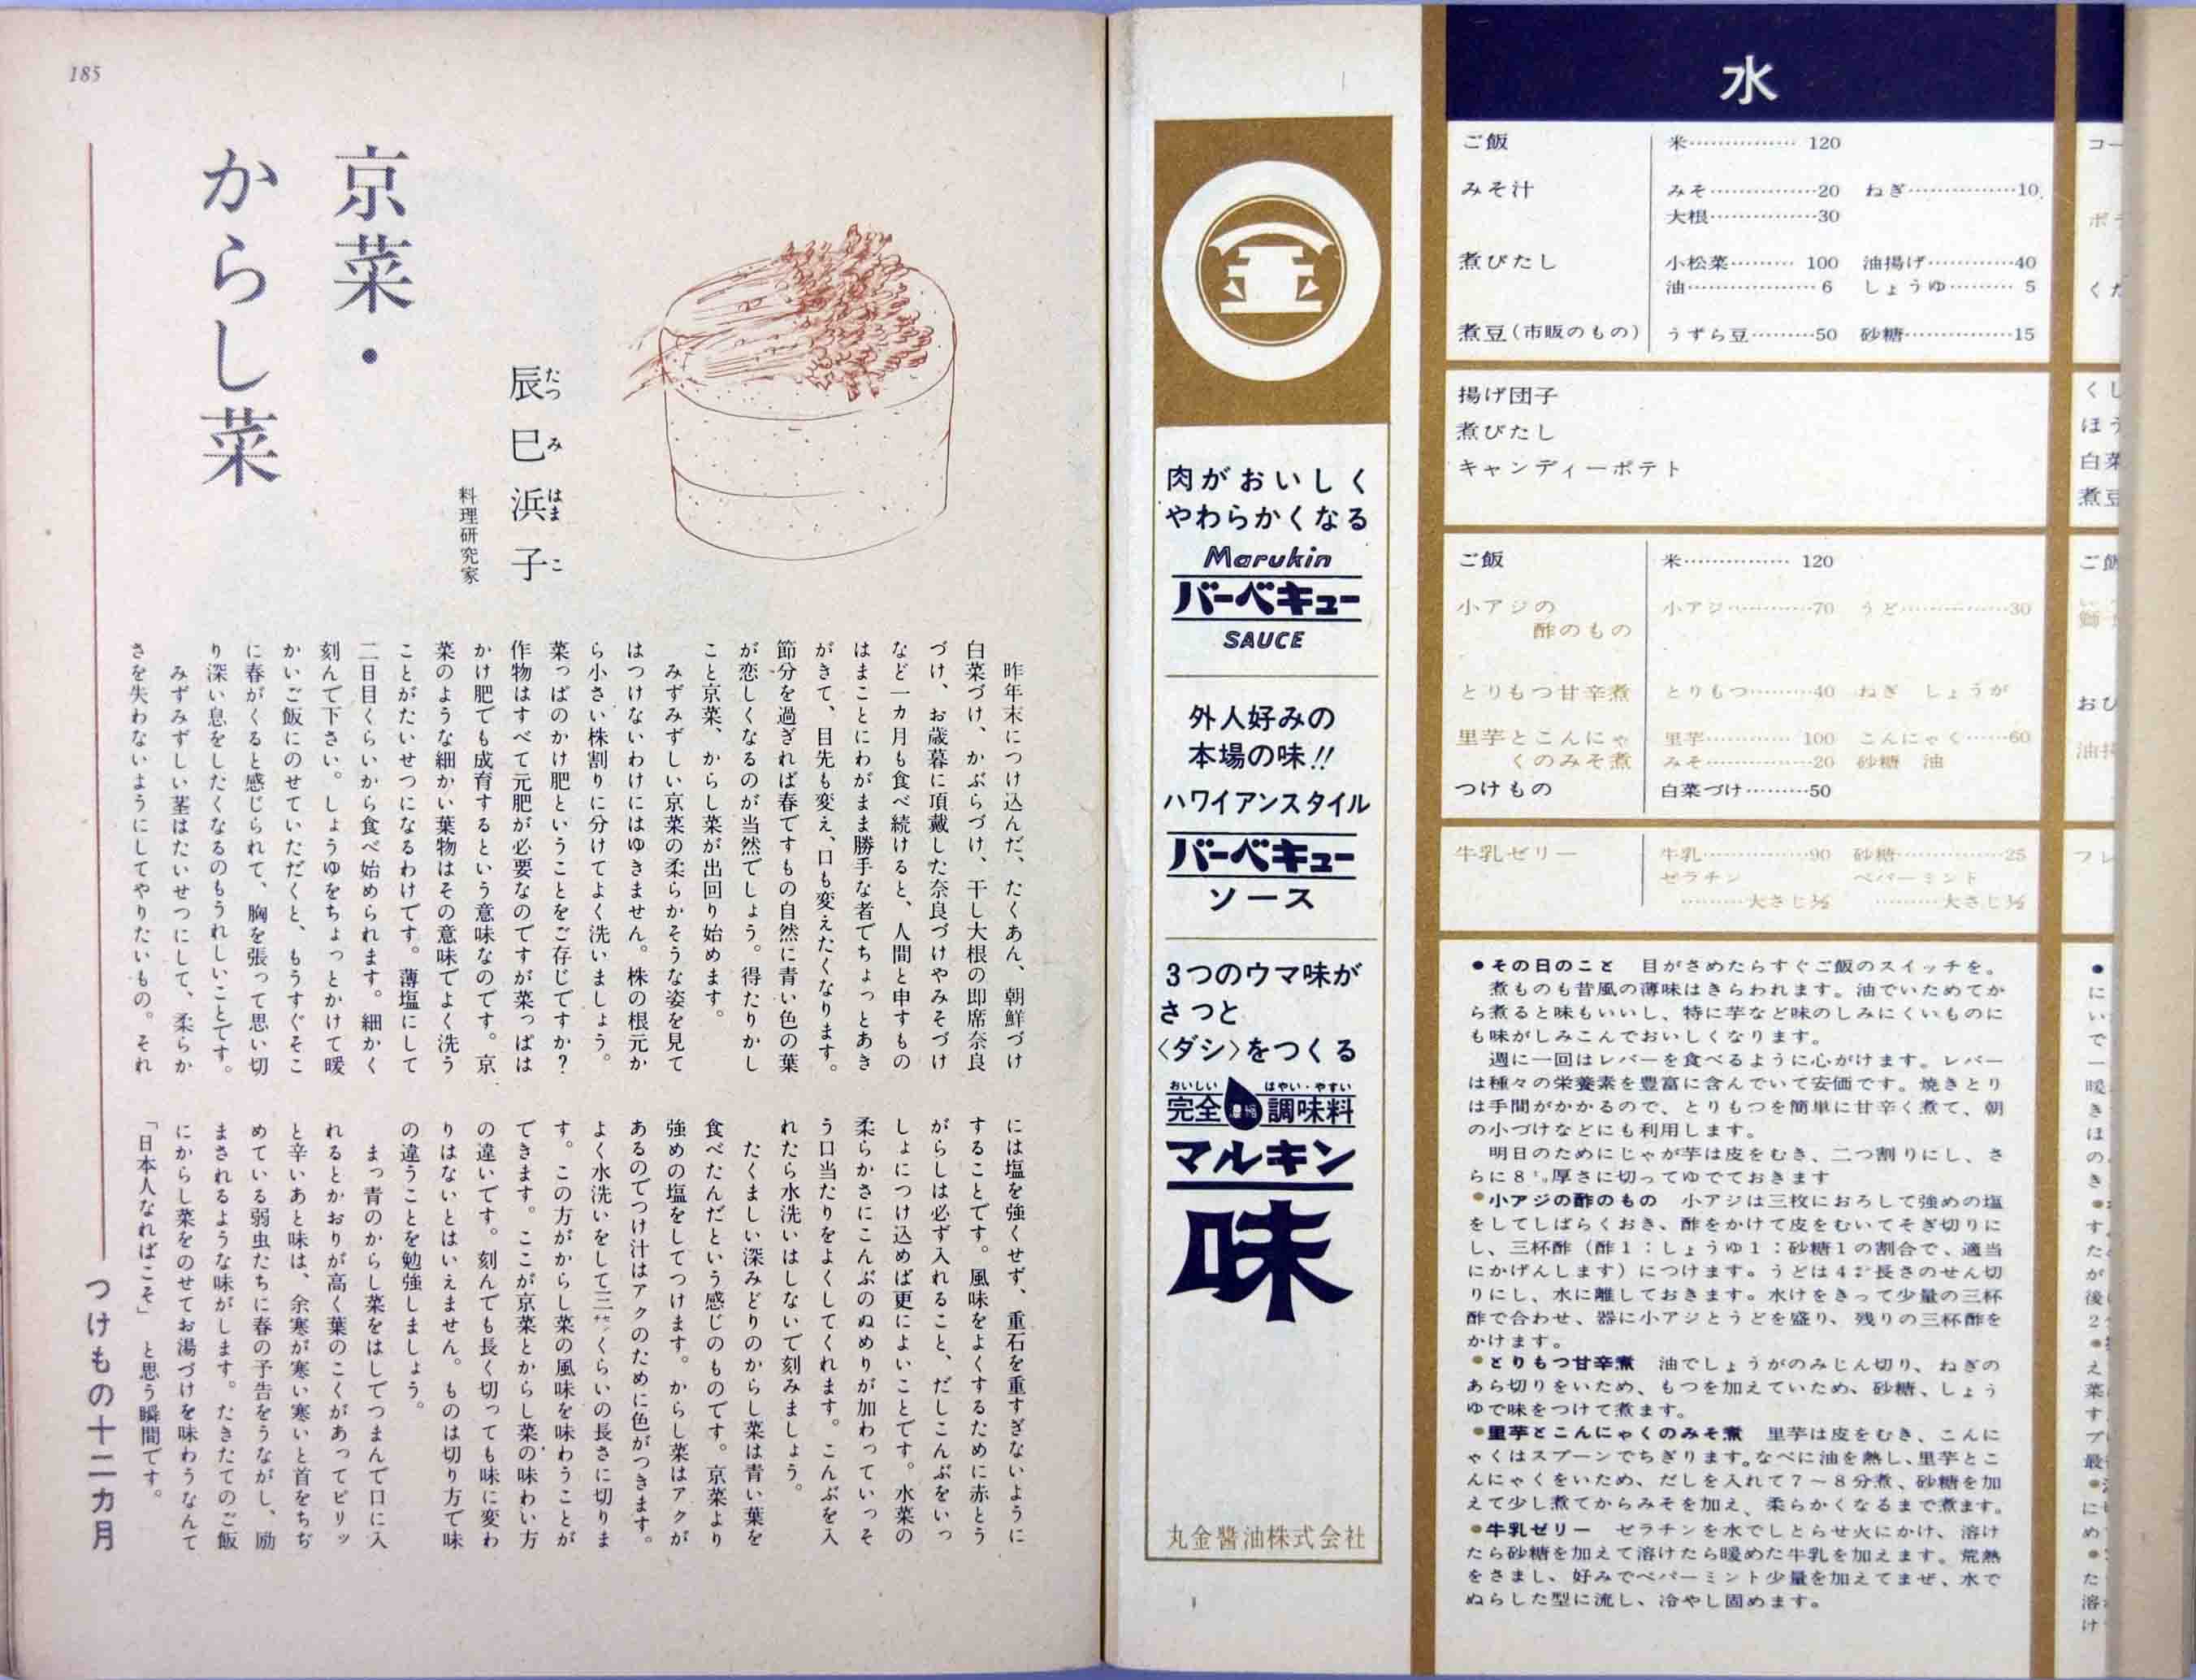 185
京菜・
からし菜
辰巳浜子
たつみはまこ
料理研究家
昨年末につけ込んだ、たくあん、朝鮮づけ
白菜づけ、かぶらづけ、干し大根の即席奈良
づけ、お歳暮に頂戴した奈良づけやみそづけ
など一カ月も食べ続けると、人間と申すもの
はまことにわがまま勝手な者でちょっとあき
がきて、目先も変え、口も変えたくなります。
節分を過ぎれば春ですもの自然に青い色の葉
が恋しくなるのが当然でしょう。得たりかし
こと京菜、からし菜が出回り始めます。
みずみずしい京菜の柔らかそうな姿を見て
はつけないわけにはゆきません。株の根元か
ら小さい株割りに分けてよく洗いましょう。
菜っぱのかけ肥ということをご存じですか?
作物はすべて元肥が必要なのですが菜っぱは
かけ肥でも成育するという意味なのです。京
菜のような細かい葉物はその意味でよく洗う
ことがたいせつになるわけです。薄塩にして
二日目くらいから食べ始められます。細かく
刻んで下さい。しょうゆをちょっとかけて暖
かいご飯にのせていただくと、もうすぐそこ
に春がくると感じられて、胸を張って思い切
り深い息をしたくなるのもうれしいことです。
みずみずしい茎はたいせつにして、柔らか
さを失わないようにしてやりたいもの。それ
には塩を強くせず、重石を重すぎないように
することです。風味をよくするために赤とう
がらしは必ず入れること、だしこんぶをいっ
しょにつけ込めば更によいことです。水菜の
柔らかさにこんぶのぬめりが加わっていっそ
う口当たりをよくしてくれます。こんぶを入
れたら水洗いはしないで刻みましょう。
たくましい深みどりのからし菜は青い葉を
食べたんだという感じのものです。京菜より
強めの塩をしてつけます。からし菜はアクが
あるのでつけ汁はアクのために色がつきます。
よく水洗いをして三㌢くらいの長さに切りま
す。この方がからし菜の風味を味わうことが
できます。ここが京菜とからし菜の味わい方
の違いです。刻んでも長く切っても味に変わ
りはないとはいえません。ものは切り方で味
の違うことを勉強しましょう。
まっ青のからし菜をはしでつまんで口に入
れるとかおりが高く葉のこくがあってピリッ
と辛いあと味は、余寒が寒い寒いと首をちぢ
めている弱虫たちに春の予告をうながし、励
まされるような味がします。たきたてのご飯
にからし菜をのせてお湯づけを味わうなんて
「日本人なればこそ」と思う瞬間です。
つけもの十二カ月
肉がおいしく
やわらかくなる
Marukin
バーベキュー
SAUCE
外人好みの
本場の味!!
ハワイアンスタイル
バーベキュー
ソース
3つのウマ味が
さっと
〈ダシ〉をつくる
おいしい はやい・やすい
完全 濃縮 調味料
マルキン
味
丸金醬油株式会社
水
ご飯 米…………… 120
みそ汁 みそ……………20 ねぎ……………10
大根……………30
煮びたし 小松菜……… 100 油揚げ…………40
油……………… 6 しょうゆ……… 5
煮豆(市販のもの) うずら豆………50 砂糖……………15
揚げ団子
煮びたし
キャンディーポテト
ご飯 米…………… 120
小アジの 小アジ…………70 うど……………30
酢のもの
とりもつ甘辛煮 とりもつ………40 ねぎ しょうが
里芋とこんにゃ 里芋………… 100 こんにゃく……60
くのみそ煮 みそ……………20 砂糖 油
つけもの 白菜づけ………50
牛乳ゼリー 牛乳……………90 砂糖……………25
ゼラチン ペパーミント
………大さじ½ ………大さじ½
●その日のこと 目がさめたらすぐご飯のスイッチを。
煮ものも昔風の薄味はきらわれます。油でいためてか
ら煮ると味もいいし、特に芋など味のしみにくいものに
も味がしみこんでおいしくなります。
週に一回はレバーを食べるように心がけます。レバー
は種々の栄養素を豊富に含んでいて安価です。焼きとり
は手間がかかるので、とりもつを簡単に甘辛く煮て、朝
の小づけなどにも利用します。
明日のためにじゃが芋は皮をむき、二つ割りにし、さ
らに8㍉厚さに切ってゆでておきます
●小アジの酢のもの 小アジは三枚におろして強めの塩
をしてしばらくおき、酢をかけて皮をむいてそぎ切りに
し、三杯酢(酢1:しょうゆ1:砂糖1の割合で、適当
にかげんします)につけます。うどは4㌢長さのせん切
りにし、水に離しておきます。水けをきって少量の三杯
酢で合わせ、器に小アジとうどを盛り、残りの三杯酢を
かけます。
●とりもつ甘辛煮 油でしょうがのみじん切り、ねぎの
あら切りをいため、もつを加えていため、砂糖、しょう
ゆで味をつけて煮ます。
●里芋とこんにゃくのみそ煮 里芋は皮をむき、こんに
ゃくはスプーンでちぎります。なべに油を熱し、里芋とこ
んにゃくをいため、だしを入れて7〜8分煮、砂糖を加
えて少し煮てからみそを加え、柔らかくなるまで煮ます。
●牛乳ゼリー ゼラチンを水でしとらせ火にかけ、溶け
たら砂糖を加えて溶けたら暖めた牛乳を加えます。荒熱
をさまし、好みでペパーミント少量を加えてまぜ、水で
ぬらした型に流し、冷やし固めます。